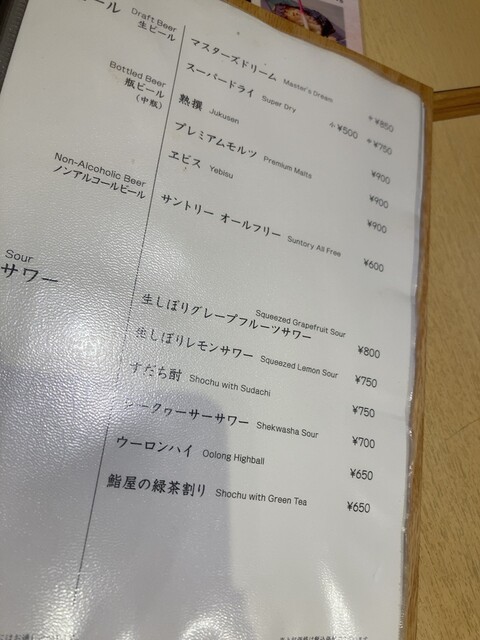 ール Draft Beer
生ビール
マスターズドリーム Master's Dream 中¥850
スーパードライ Super Dry 小¥500 中¥750
Bottled Beer
瓶ビール
(中瓶)
熟撰 Jukusen ¥900
プレミアムモルツ Premium Malts ¥900
ヱビス Yebisu ¥900
Non-Alcoholic Beer
ノンアルコールビール
サントリー オールフリー Suntory All Free ¥600
Sour
サワー
生しぼりグレープフルーツサワー Squeezed Grapefruit Sour ¥800
生しぼりレモンサワー Squeezed Lemon Sour ¥750
すだち酎 Shochu with Sudachi ¥750
シークヮーサーサワー Shekwasha Sour ¥700
ウーロンハイ Oolong Highball ¥650
鮨屋の緑茶割り Shochu with Green Tea ¥650